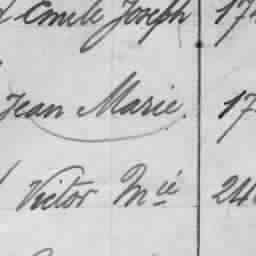 Emile Joseph 17
Jean Marie. 17
Victor Mié 24